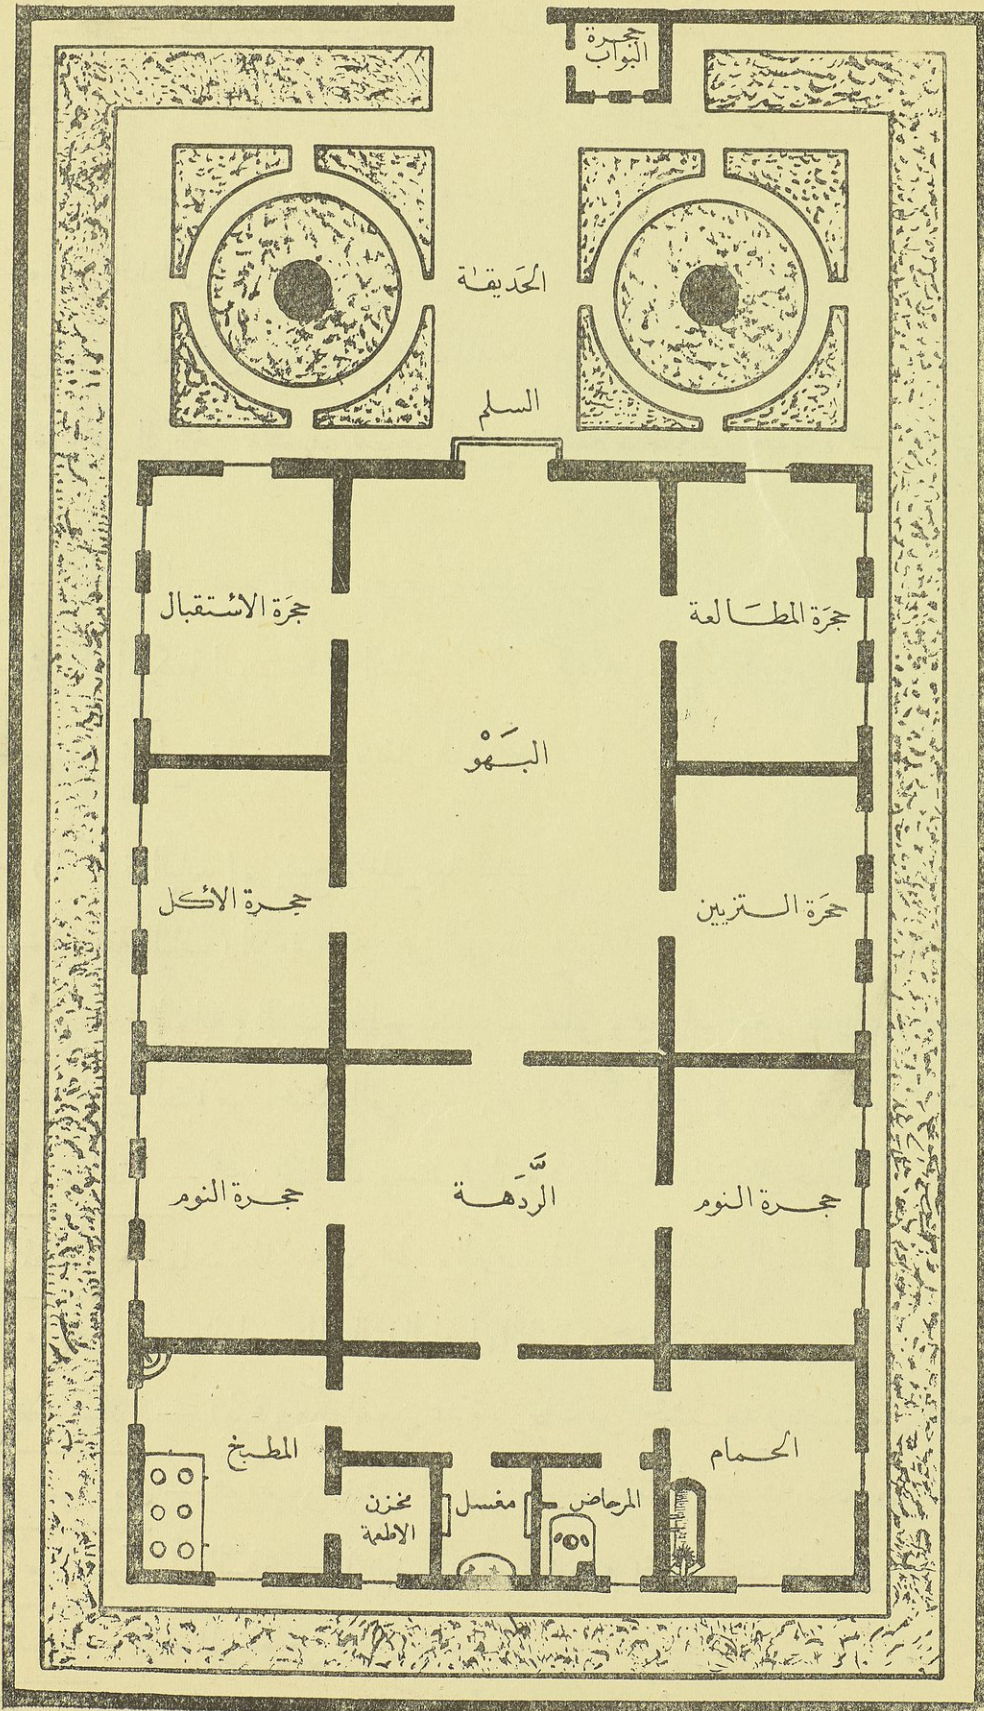 حجرة
البواب
الحَديقة
السلم
حجرَة المطَالعة
حجرَة الاستقبال
البَهْو
حجرَة التزيين
حجرة الأكل
حجرة النوم
الرَّدَهة
حجرة النوم
الحمام
المرحاض
مغسل
مخزن
الاطعمة
المطبخ